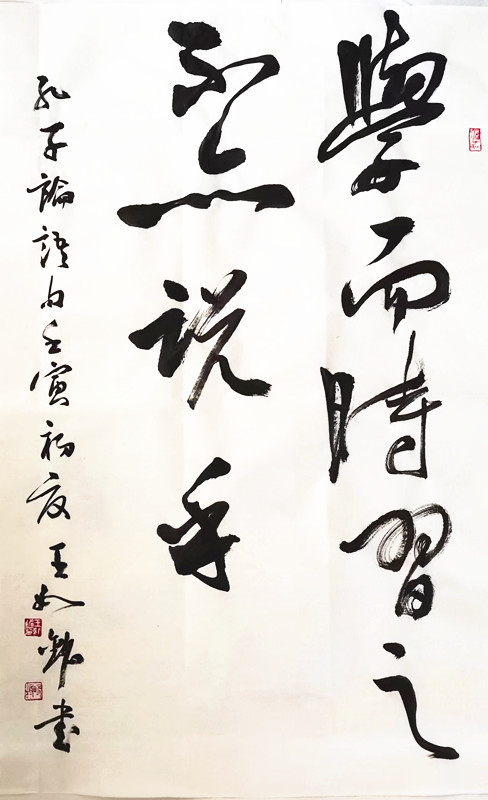 學而時習之
不亦説乎
孔子論語句壬寅初夏王如鉄書